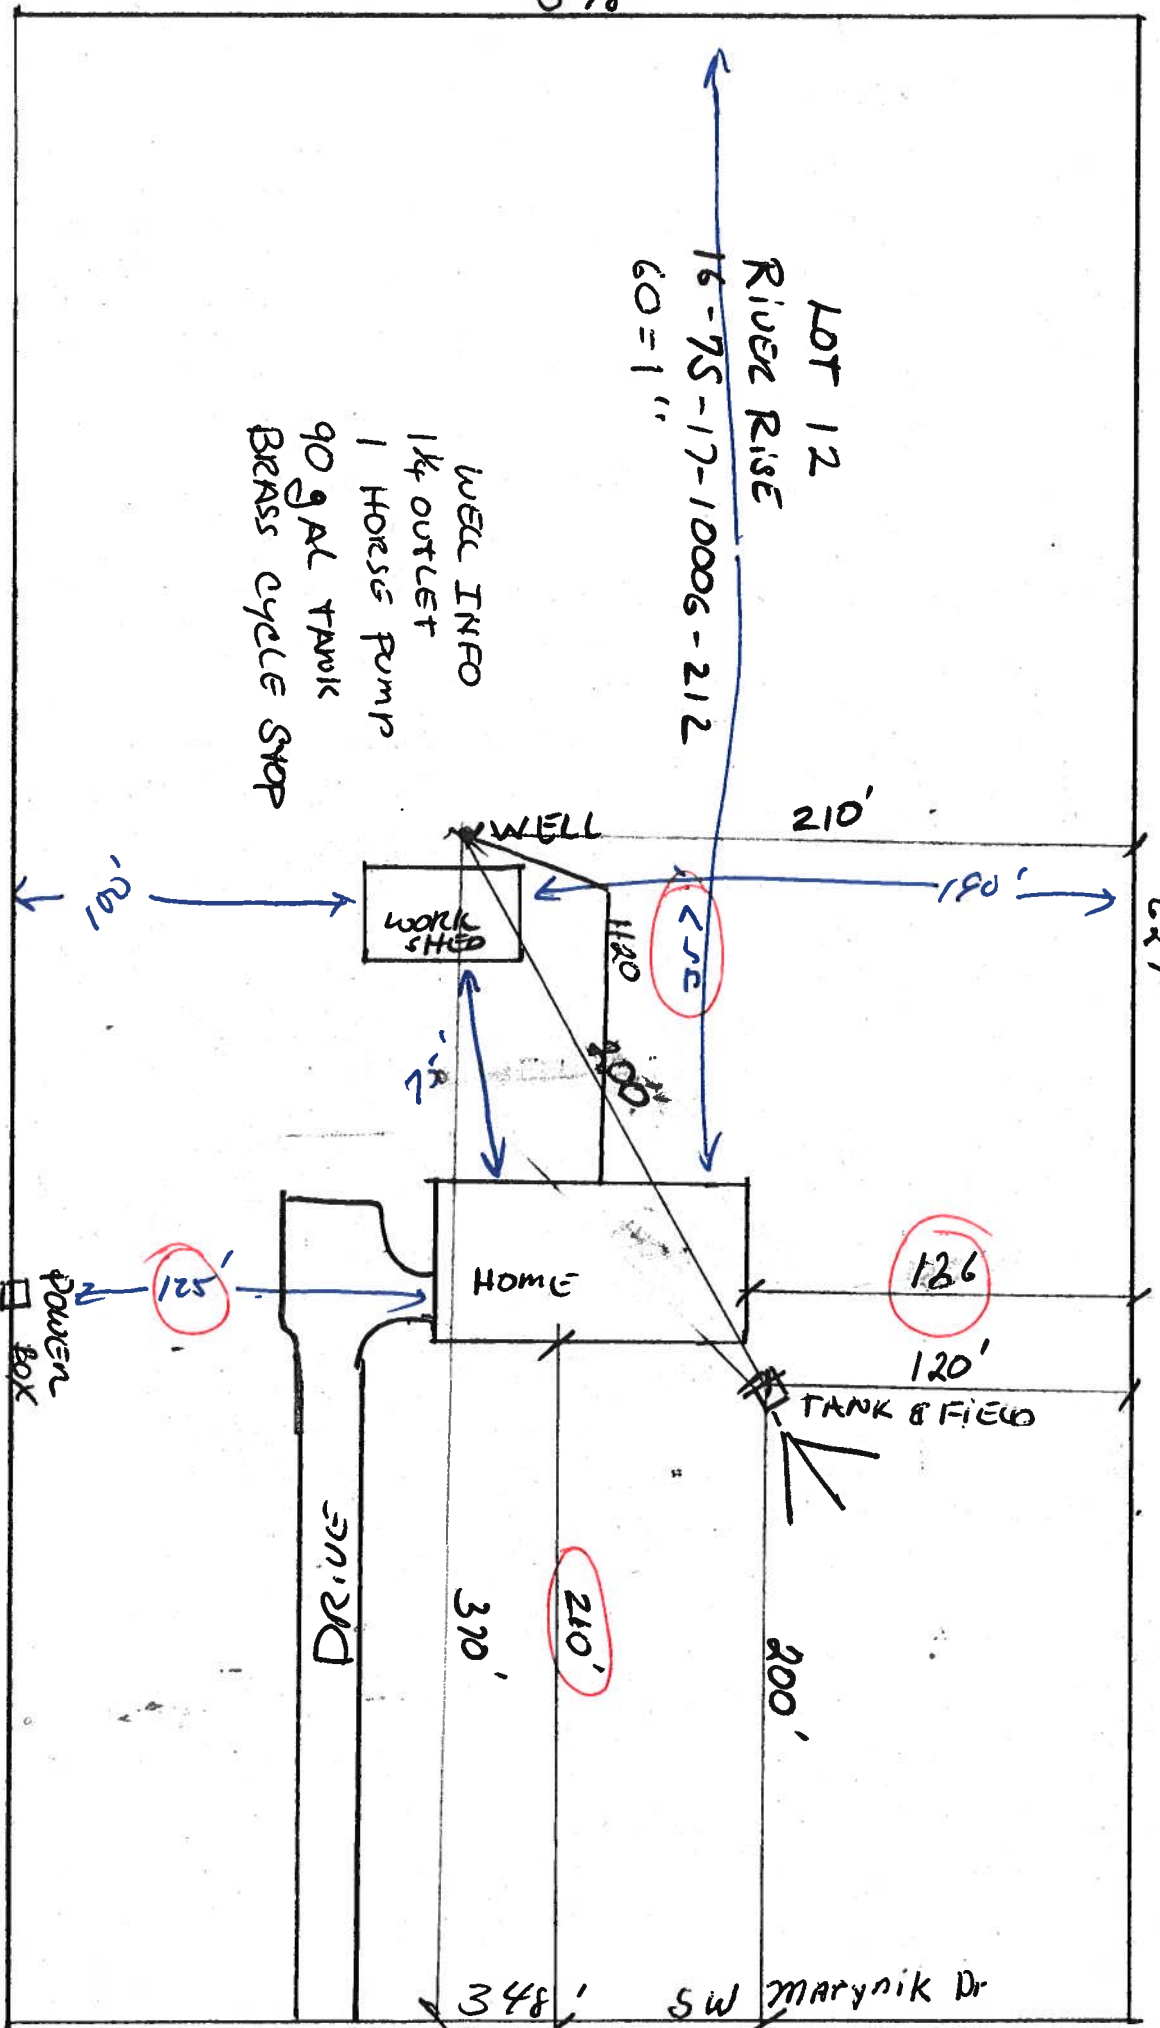 LOT 12
RIVER RISE
16-7S-17-10006-212
60=1"
WELL INFO
1¼ OUTLET
1 HORSE PUMP
90 gAL TANK
BRASS CYCLE STOP
WELL
210'
100'
WORK
SHED
190'
H20
400'
75'
HOME
125'
POWER
BOX
126
120'
TANK & FIELD
DRIVE
370'
210'
200'
348'
SW Marynik Dr